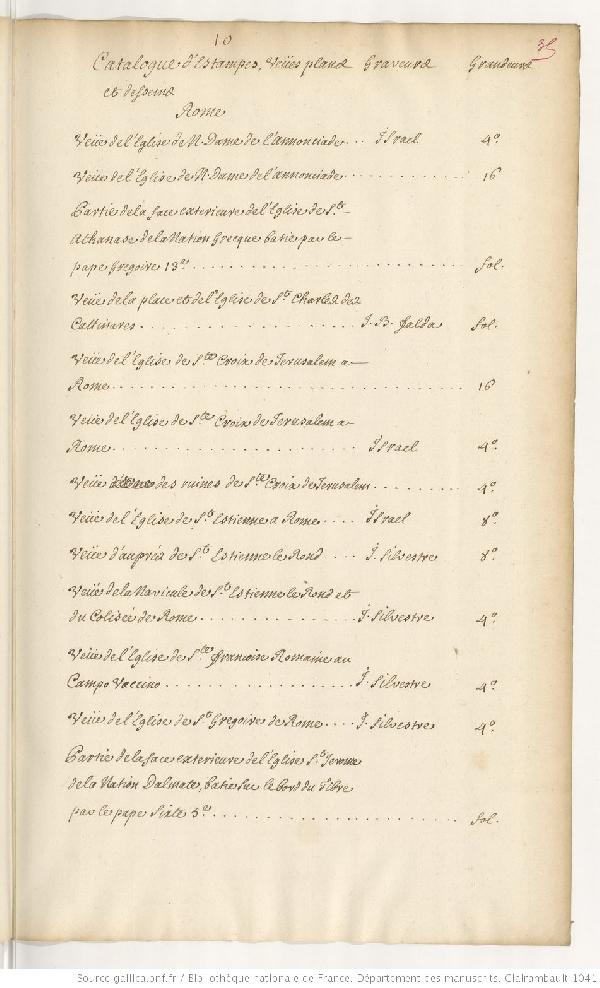 10
35
Catalogue d'Estampes, Veües plans Graveurs Grandeurs
et desseins
Rome
Veüe de l'Eglise de N. Dame de l'annonciade .. Israel 4°
Veüe de l'Eglise de N. Dame de l'annonciade ............ 16
Partie de la face exterieure de l'Eglise de St.
Athanase de la Nation Grecque batie par le
pape Gregoire 13e. ............ fol.
Veüe de la place et de l'Eglise de St. Charles des
Cattinares ............ J. B. falda fol.
Veüe de l'Eglise de Ste. Croix de Jerusalem a
Rome ............ 16
Veüe de l'Eglise de Ste. Croix de Jerusalem a
Rome ............ Israel 4°
Veüe des ruines de Ste. Croix de Jerusalem ........ 4°
Veüe de l'Eglise de St. Estienne a Rome .... Israel 8°
Veüe d'auprés de St. Estienne le Rond ... J. Silvestre 8°
Veüe de la Navicule de St. Estienne le Rond et
du Colisée de Rome ............ J. Silvestre 4°
Veüe de l'Eglise de Ste. françoise Romaine au
Campo Vaccino ............ J. Silvestre 4°
Veüe de l'Eglise de St. Gregoire de Rome .... J. Silvestre 4°
Partie de la face exterieure de l'Eglise St. Jerome
de la Nation Dalmate, batie sur le bord du Tibre
par le pape Sixte 5e. ............ fol.
Source gallica.bnf.fr / Bibliothèque nationale de France. Département des manuscrits. Clairambault 1041